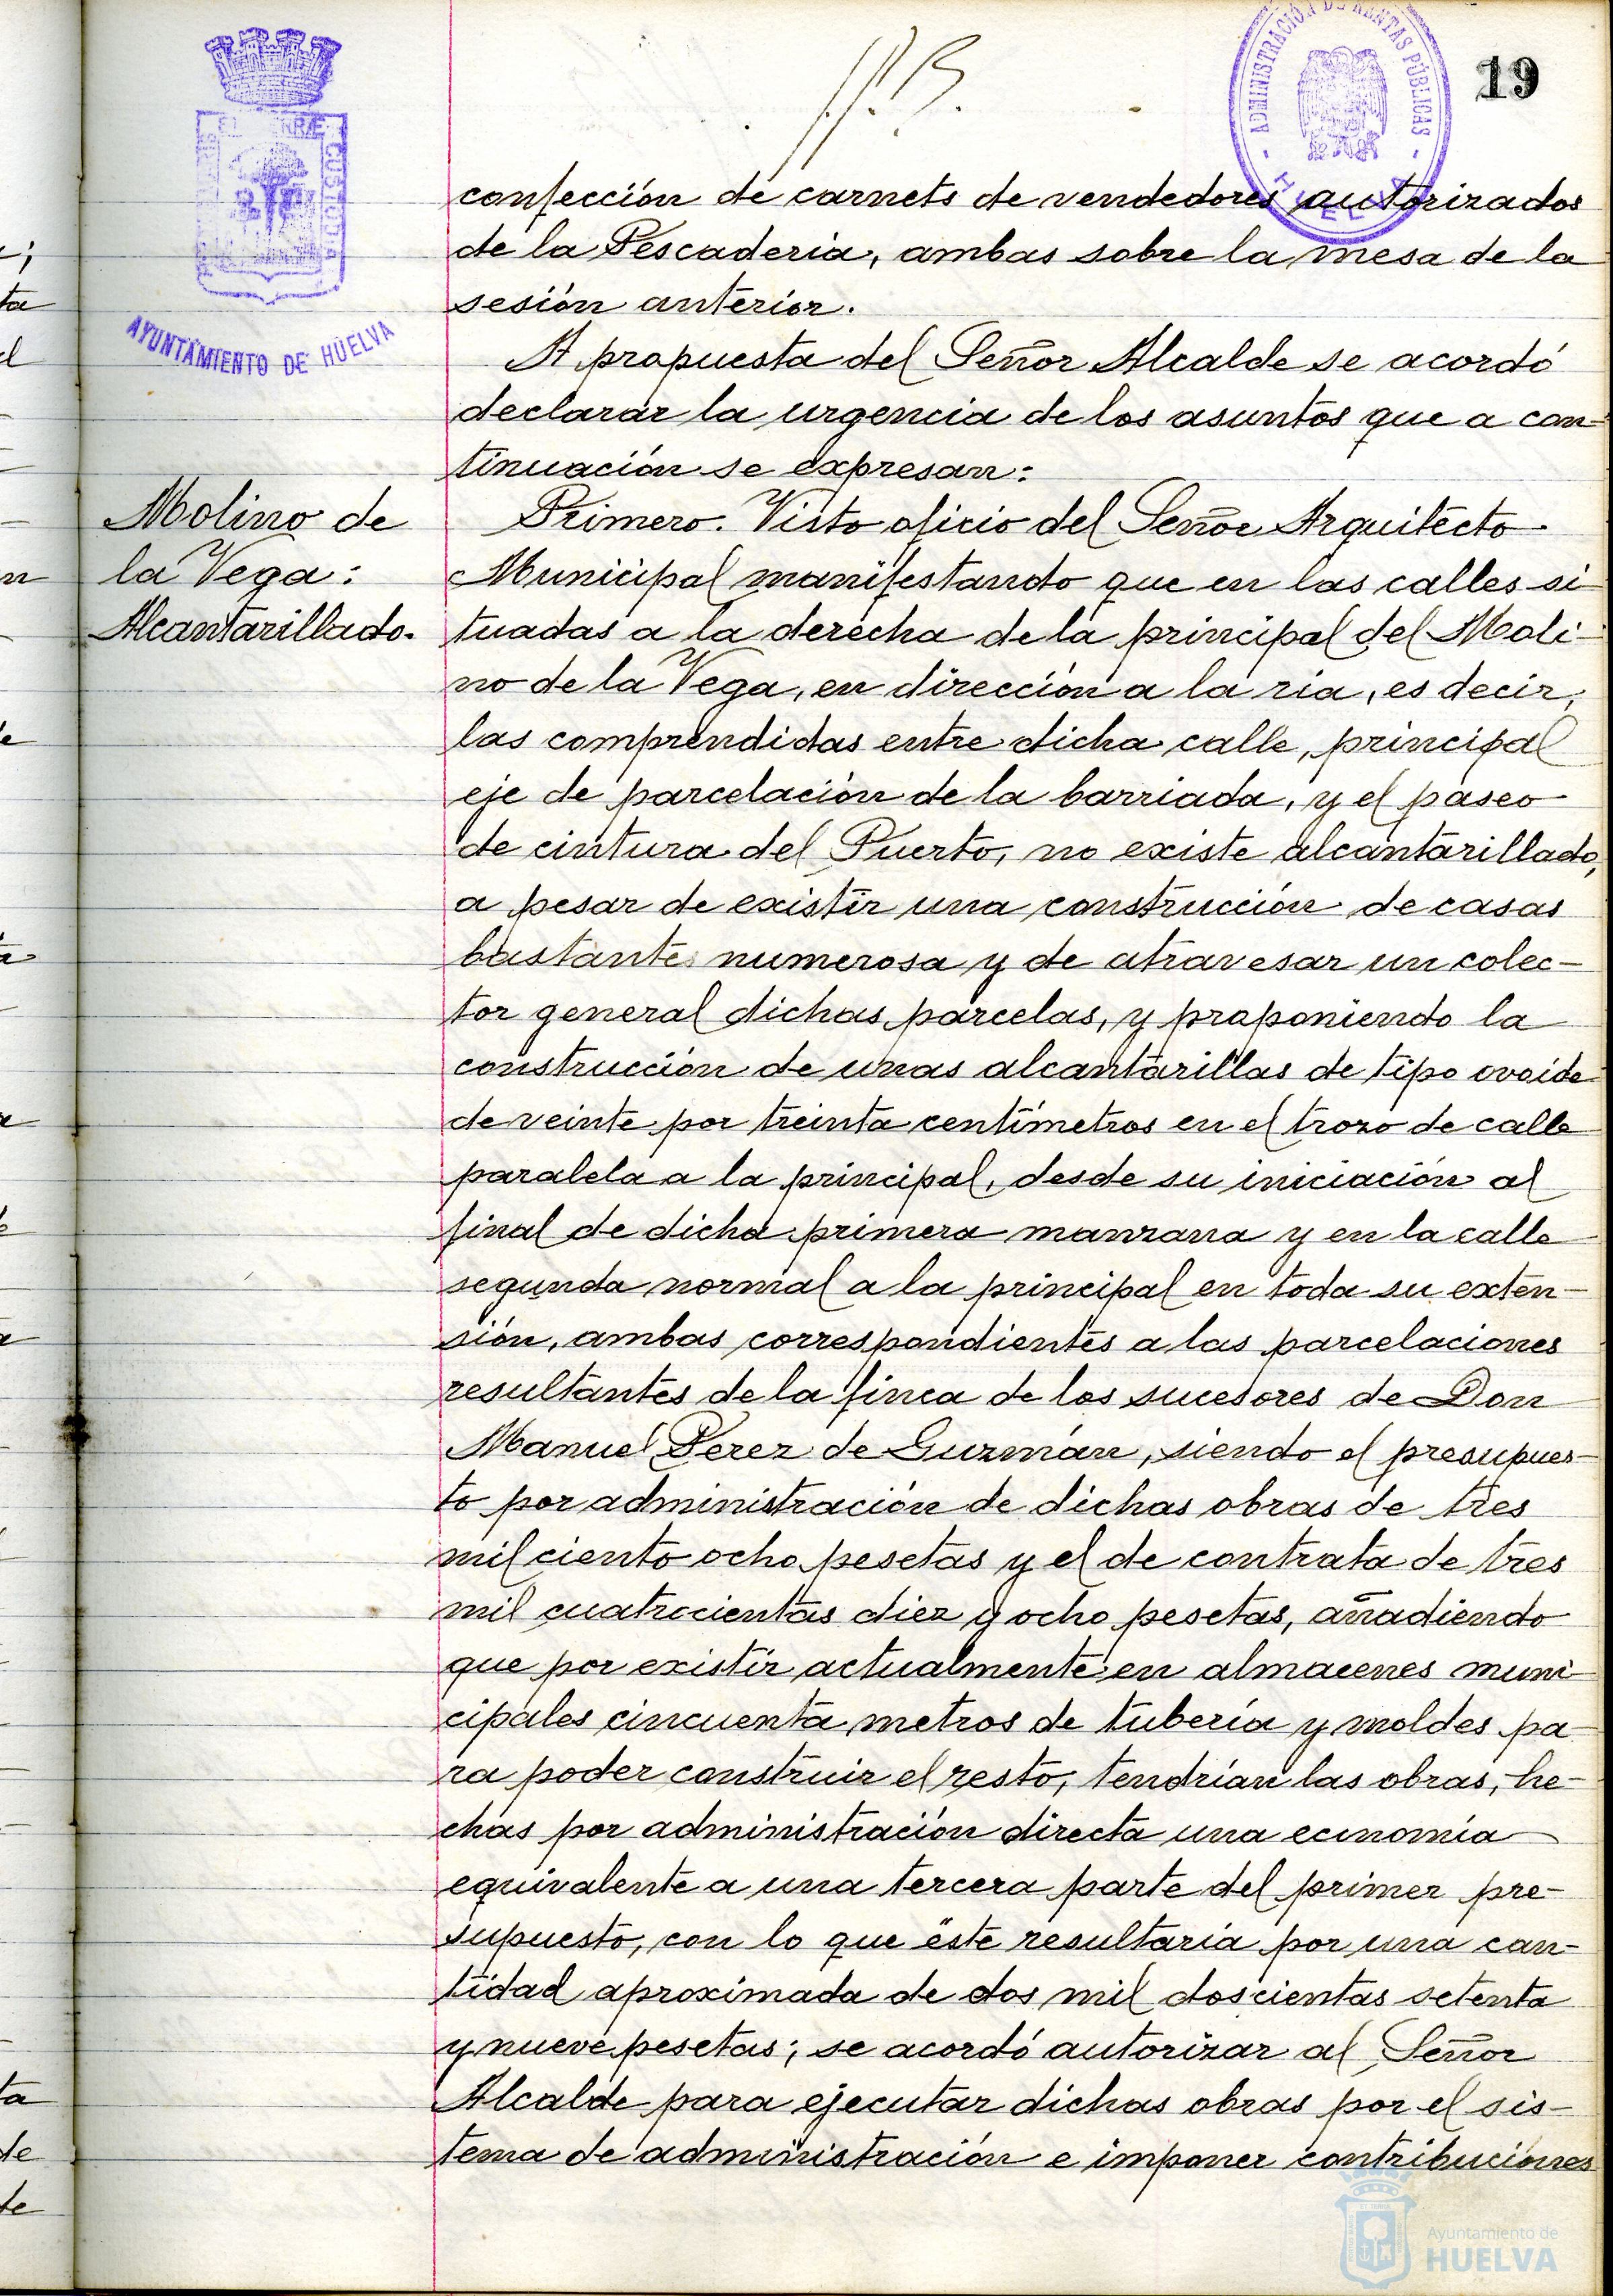 19
ADMINISTRACIÓN DE RENTAS PÚBLICAS
HUELVA
CUSTODIA
AYUNTAMIENTO DE HUELVA
confección de carnets de vendedores autorizados
de la Pescadería, ambas sobre la mesa de la
sesión anterior.
A propuesta del Señor Alcalde se acordó
declarar la urgencia de los asuntos que a con-
tinuación se expresan:
Molino de
la Vega:
Alcantarillado.
Primero. Visto oficio del Señor Arquitecto
Municipal manifestando que en las calles si-
tuadas a la derecha de la principal del Moli-
no de la Vega, en dirección a la ría, es decir,
las comprendidas entre dicha calle, principal
eje de parcelación de la barriada, y el paseo
de cintura del Puerto, no existe alcantarillado,
a pesar de existir una construcción de casas
bastante numerosa y de atravesar un colec-
tor general dichas parcelas, y proponiendo la
construcción de unas alcantarillas de tipo ovoide
de veinte por treinta centímetros en el trozo de calle
paralela a la principal, desde su iniciación al
final de dicha primera manzana y en la calle
segunda normal a la principal en toda su exten-
sión, ambas correspondientes a las parcelaciones
resultantes de la finca de los sucesores de Don
Manuel Perez de Guzmán, siendo el presupues-
to por administración de dichas obras de tres
mil ciento ocho pesetas y el de contrata de tres
mil cuatrocientas diez y ocho pesetas, añadiendo
que por existir actualmente en almacenes muni-
cipales cincuenta metros de tubería y moldes pa
ra poder construir el resto, tendrían las obras, he-
chas por administración directa una economía
equivalente a una tercera parte del primer pre-
supuesto, con lo que éste resultaría por una can-
tidad aproximada de dos mil doscientas setenta
y nueve pesetas; se acordó autorizar al Señor
Alcalde para ejecutar dichas obras por el sis-
tema de administración e imponer contribuciones
Ayuntamiento de
HUELVA